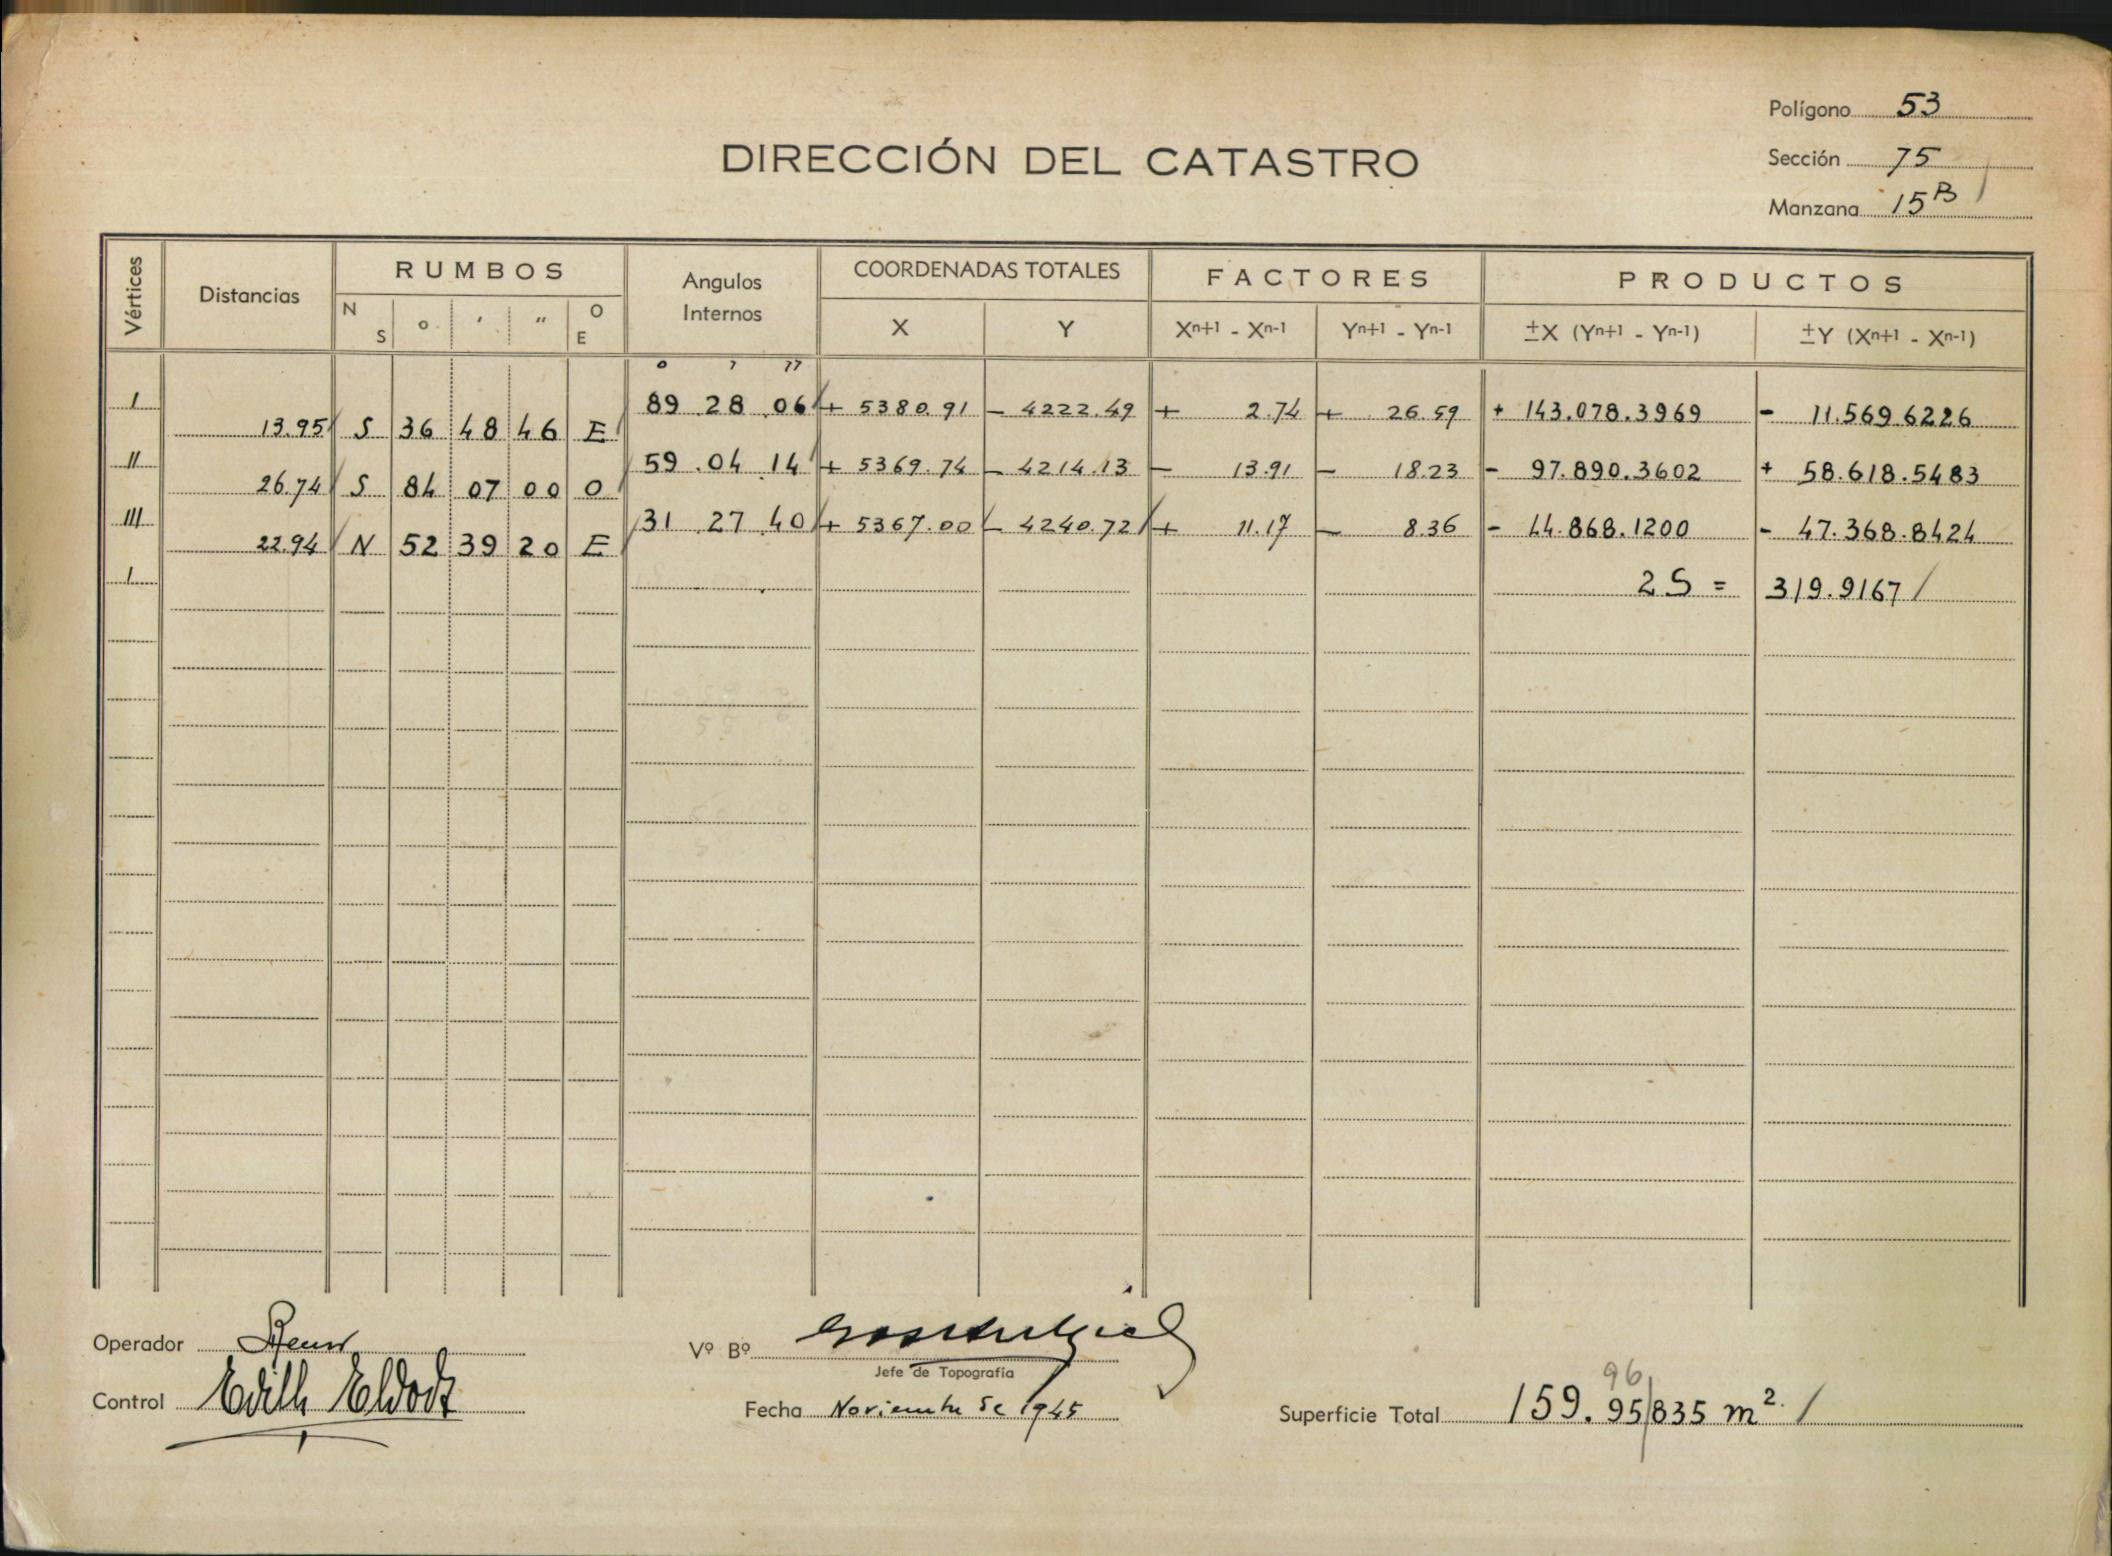 Polígono 53
DIRECCIÓN DEL CATASTRO
Sección 75
Manzana 15B
Vértices Distancias RUMBOS Angulos Internos COORDENADAS TOTALES FACTORES PRODUCTOS
N S o ' " O E X Y Xn+1 - Xn-1 Yn+1 - Yn-1 ±X (Yn+1 - Yn-1) ±Y (Xn+1 - Xn-1)
o ' "
I 89 28 06 + 5380.91 - 4222.49 + 2.74 + 26.59 + 143.078.3969 - 11.569.6226
13.95 S 36 48 46 E
II 59 04 14 + 5369.74 - 4214.13 - 13.91 - 18.23 - 97.890.3602 + 58.618.5483
26.74 S 84 07 00 O
III 31 27 40 + 5367.00 - 4240.72 + 11.17 - 8.36 - 44.868.1200 - 47.368.8424
22.94 N 52 39 20 E
I 2S = 319.9167
Operador
Vº Bº
Jefe de Topografía
Control Edith
Fecha Noviembre de 1945
96
Superficie Total 159.95835 m2.